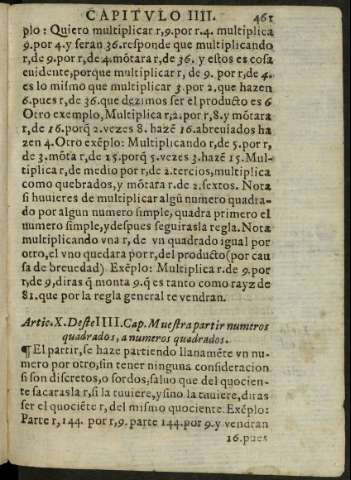 CAPITVLO IIII. 461
plo: Quiero multiplicar r,9.por r.4. multiplica
9.por 4.y seran 36.responde que multiplicando
r,de 9.por r,de 4.mõtara r,de 36. y estos es cosa
euidente,porque multiplicar r, de 9. por r,de 4.
es lo mismo que multiplicar 3.por 2,que hazen
6.pues r,de 36.que dezimos ser el producto es 6
Otro exemplo, Multiplica r,2.por r,8.y mõtara
r,de 16.porq̃ 2.vezes 8. hazẽ 16.abreuiados ha
zen 4.Otro exẽplo: Multiplicando r,de 5.por r,
de 3.mõta r,de 15.porq̃ 5.vezes 3.hazẽ 15.Mul-
tiplica r,de medio por r,de 2.tercios,multiplica
como quebrados,y mõtara r.de 2.sextos. Nota
si huuieres de multiplicar algũ numero quadra-
do por algun numero simple, quadra primero el
numero simple,y despues seguiras la regla. Nota
multiplicando vna r, de vn quadrado igual por
otro,el vno quedara por r,del producto(por cau
sa de breuedad) Exẽplo: Multiplica r.de 9.por
r,de 9,diras q̃ monta 9.q̃ es tanto como rayz de
81.que por la regla general te vendran.
Artic.X.Deste IIII.Cap.Muestra partir numeros
quadrados, a numeros quadrados.
¶El partir,se haze partiendo llanamẽte vn nu-
mero por otro,sin tener ninguna consideracion
si son discretos,o sordos,saluo que del quocien-
te sacaras la r,si la tuuiere,y si no la tuuiere,diras
ser el quociẽte r, del mismo quociente.Exẽplo:
Parte r,144. por r,9.parte 144.por 9.y vendran
16.pues